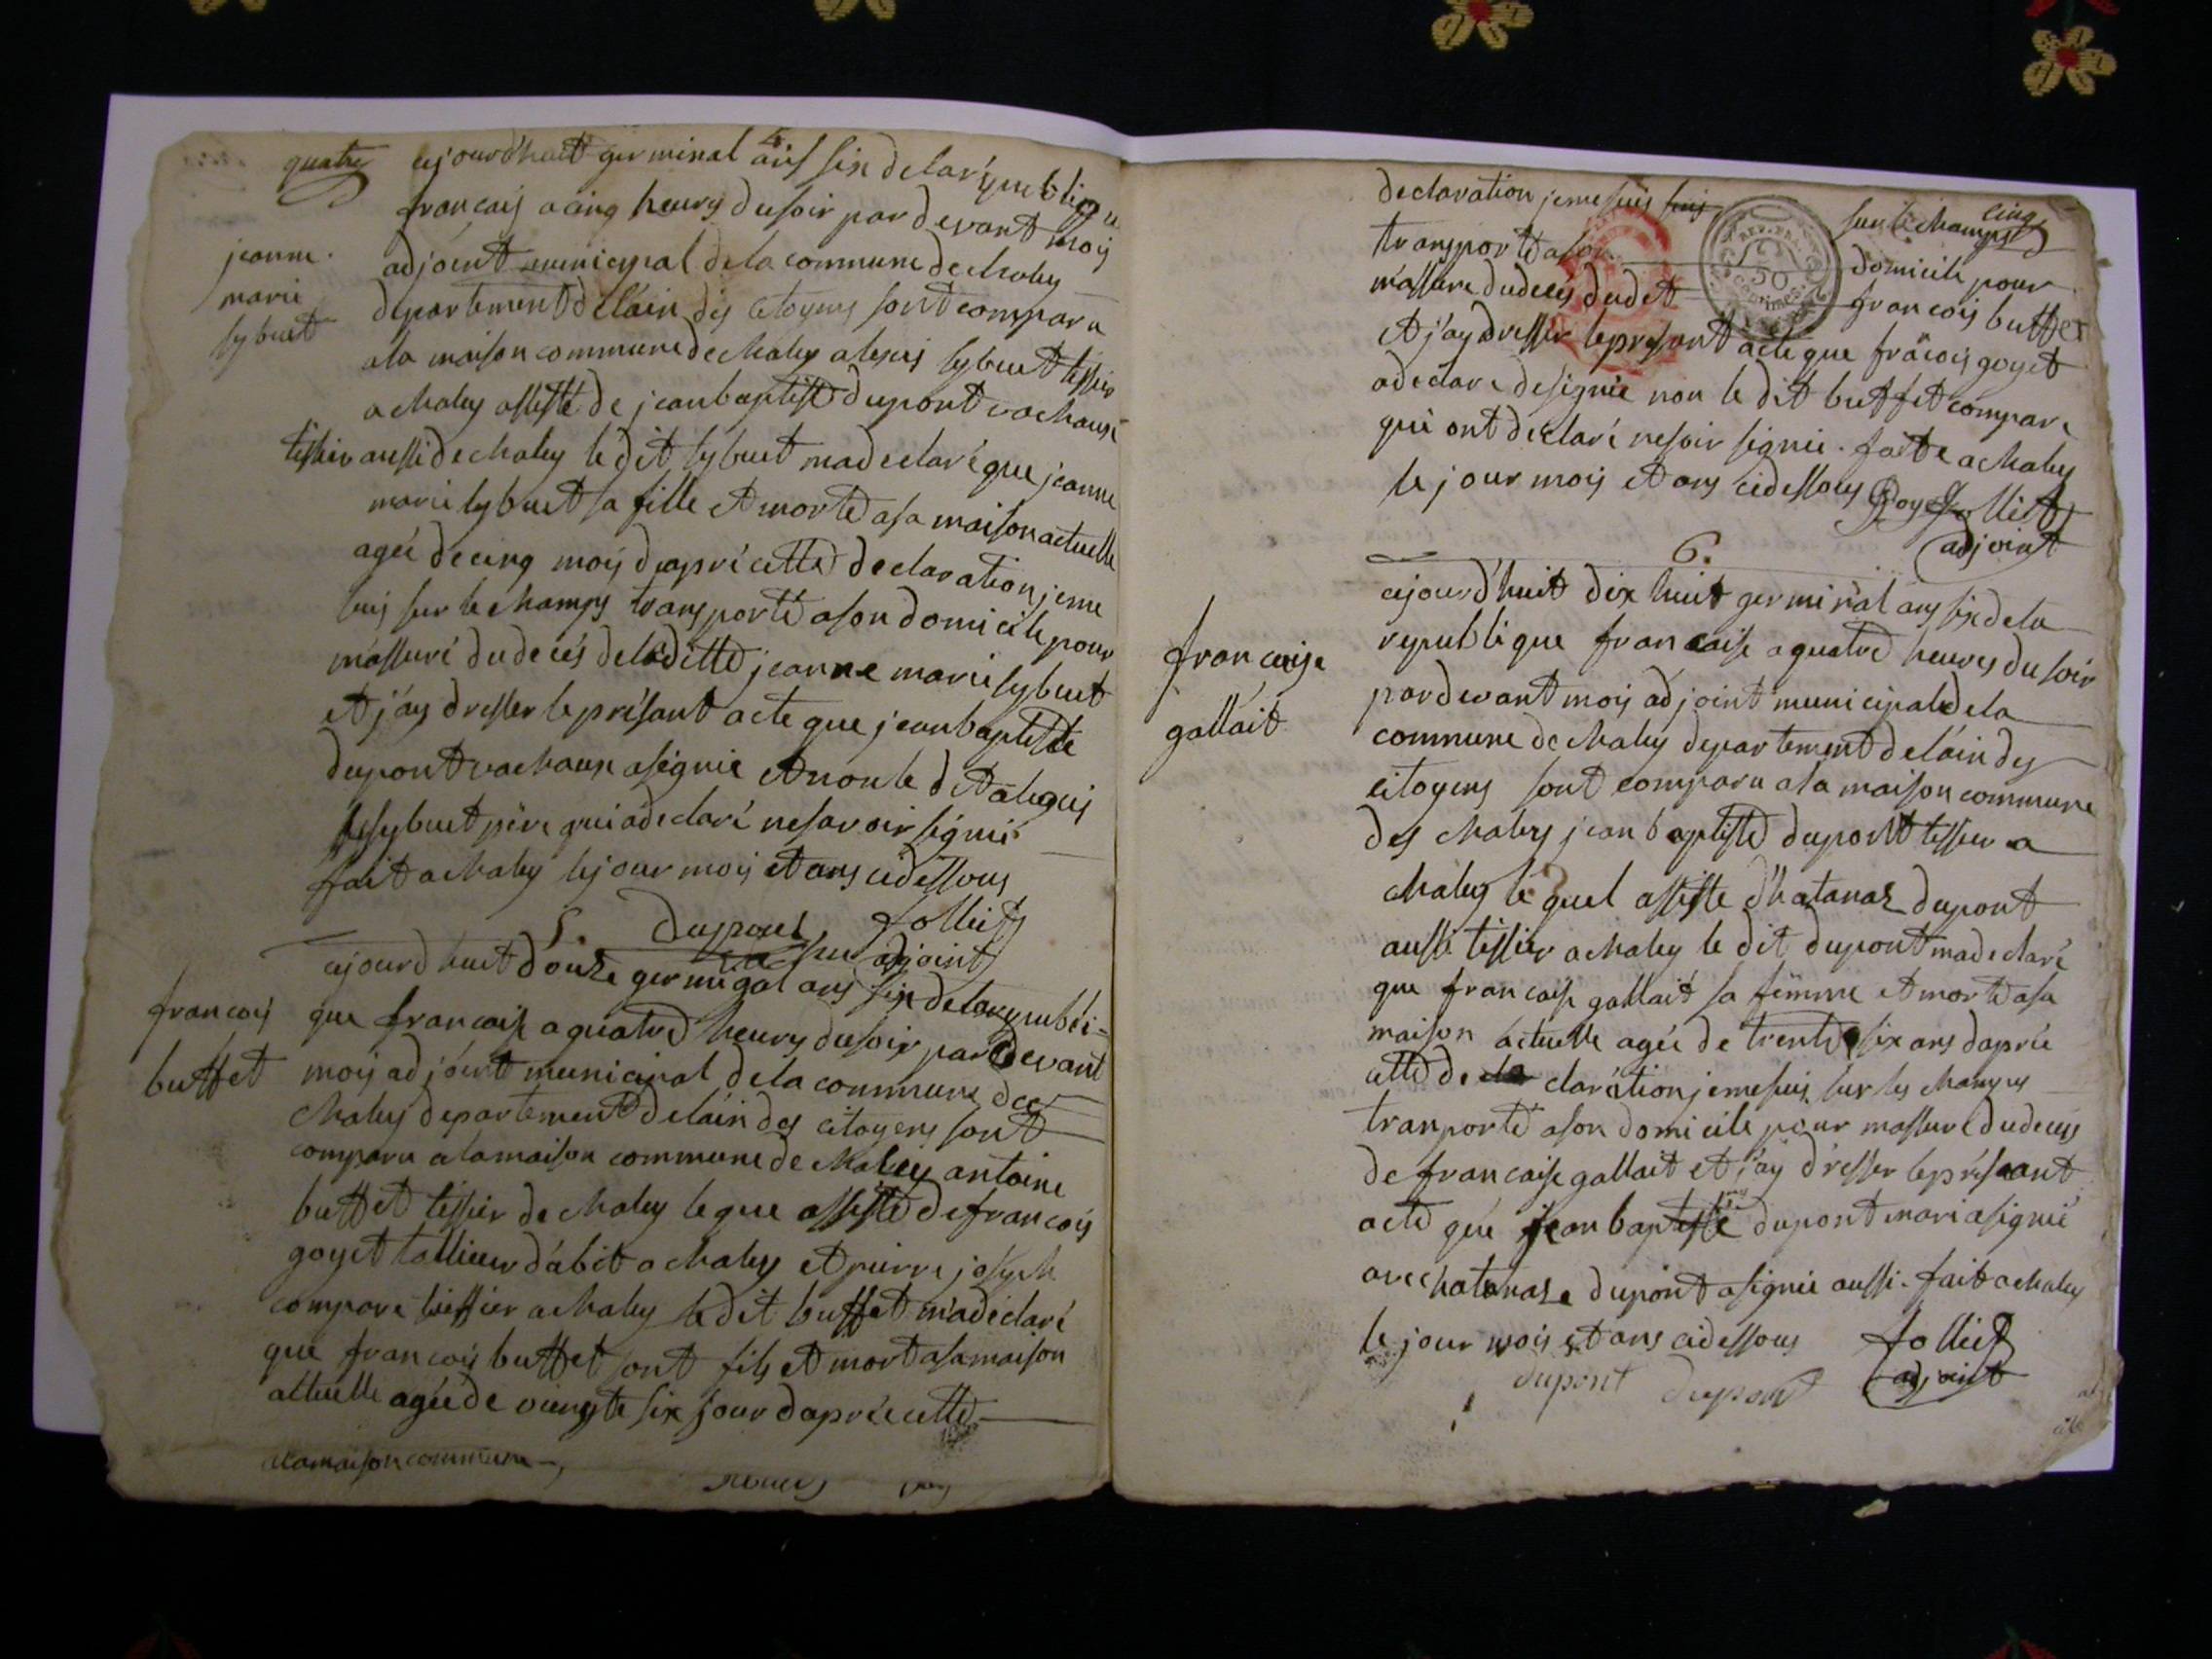 quatre
4
aujourdhuit germinal ans six de la republique
francais a cinq heurs du soir par devant moij
adjoint municipal de la commune de chaley
departement de lain des citoyens sont comparu
a la maison commune de chaley alexis sybuet tissier
a chaley assisté de jean baptiste dupont vachaux
tissier aussi de chaley le dit sybuet ma declaré que jeanne
marie sybuet sa fille et morte a sa maison actuelle
ageé de cinq mois dapré cette declaration je me
suis sur le champs transporté a son domicile pour
m'assuré du decés de la ditte jeanne marie sybuet
et j'ay dresser le présant acte que jean baptiste
dupont vachaux a signié et non le dit alegsis
sybuet père qui a declaré ne savoir signié
fait a chaley le jour mois et ans cidessous
jeanne
marie
sybuet
dupont
folliet
adjoint
5.
aujourdhuit douze germinal ans six de la republi-
que francaise a quatre heurs du soir par devant
moij adjoint municipal de la commune de
chaley departement de lain des citoyens sont
comparu a la maison commune de chaley antoine
buffet tissier de chaley le que assisté de francois
goyet tallieur dabit a chaley et pierre joseph
compare tissier a chaley le dit buffet m'a declaré
que francois buffet sont fils et mort a sa maison
actuelle ageé de viengte six jour daprée cette
francois
buffet
a la maison commune
cinq
declaration je me suis sur le champs
transporté a son domicile pour
m'assure du deces dudit francois buffet
REP. FRA.
50
CENTIMES
et j'ay dresser le présant acte que fracois goyet
a declare de signié non le dit buffet compare
qui ont declaré ne soir signié. faite a chaley
le jour mois et ans cidessous goyet folliet
adjoint
6.
aujourdhuit dix huit germinal ans six de la
republique francaise a quatre heures du soir
par devant moij adjoint municipal de la
commune de chaley departement de lain des
citoyens sont comparu a la maison commune
des chaley jean baptiste dupont tissier a
chaley le quel assiste dhatanaz dupont
aussi tissier a chaley le dit dupont ma declaré
que francaise gallait sa fémme et morte a sa
maison actuelle ageé de trente six ans daprée
cette de claration je me suis sur les champs
tranporté a son domicile pour massure du deces
de francaise gallait et j'ay dresser le présant
acte que jean baptiste dupont mari a signié
avec hatanaze dupont a signié aussi. fait a chaley
le jour mois et ans cidessous folliet
francaise
gallait
dupont dupont adjoint